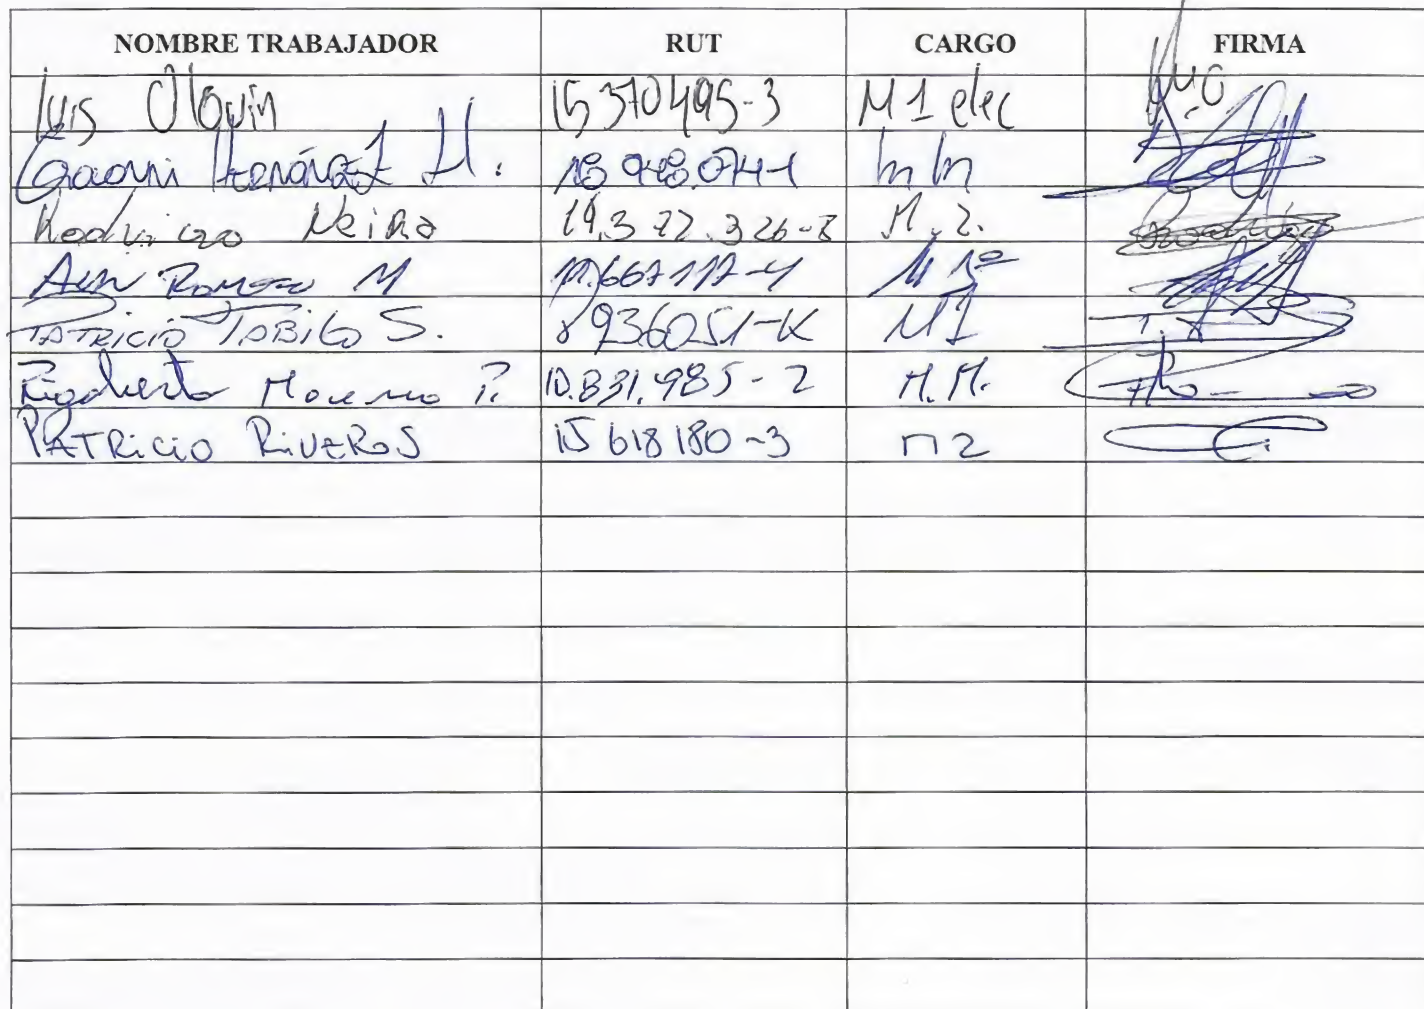 NOMBRE TRABAJADOR RUT CARGO FIRMA
Luis Olguin 15370495-3 M1 elec
Giaovni Hernández H. MM
Rodrigo Neira 19.372.326-8 M.2.
Romero M 11.667117-4 M 1º
PATRICIO TABILO S. 8936051-K M1
Rigoberto Moreno P. 10.831.985-2 M.M.
PATRICIO RIVEROS 15618180-3 M2